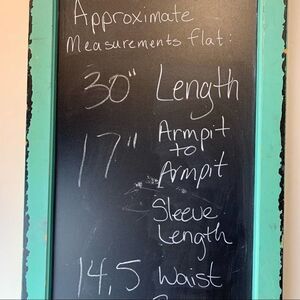 Approximate
Measurements flat:
30" Length
17" Armpit
to
Armpit
Sleeve
Length
14.5 Waist